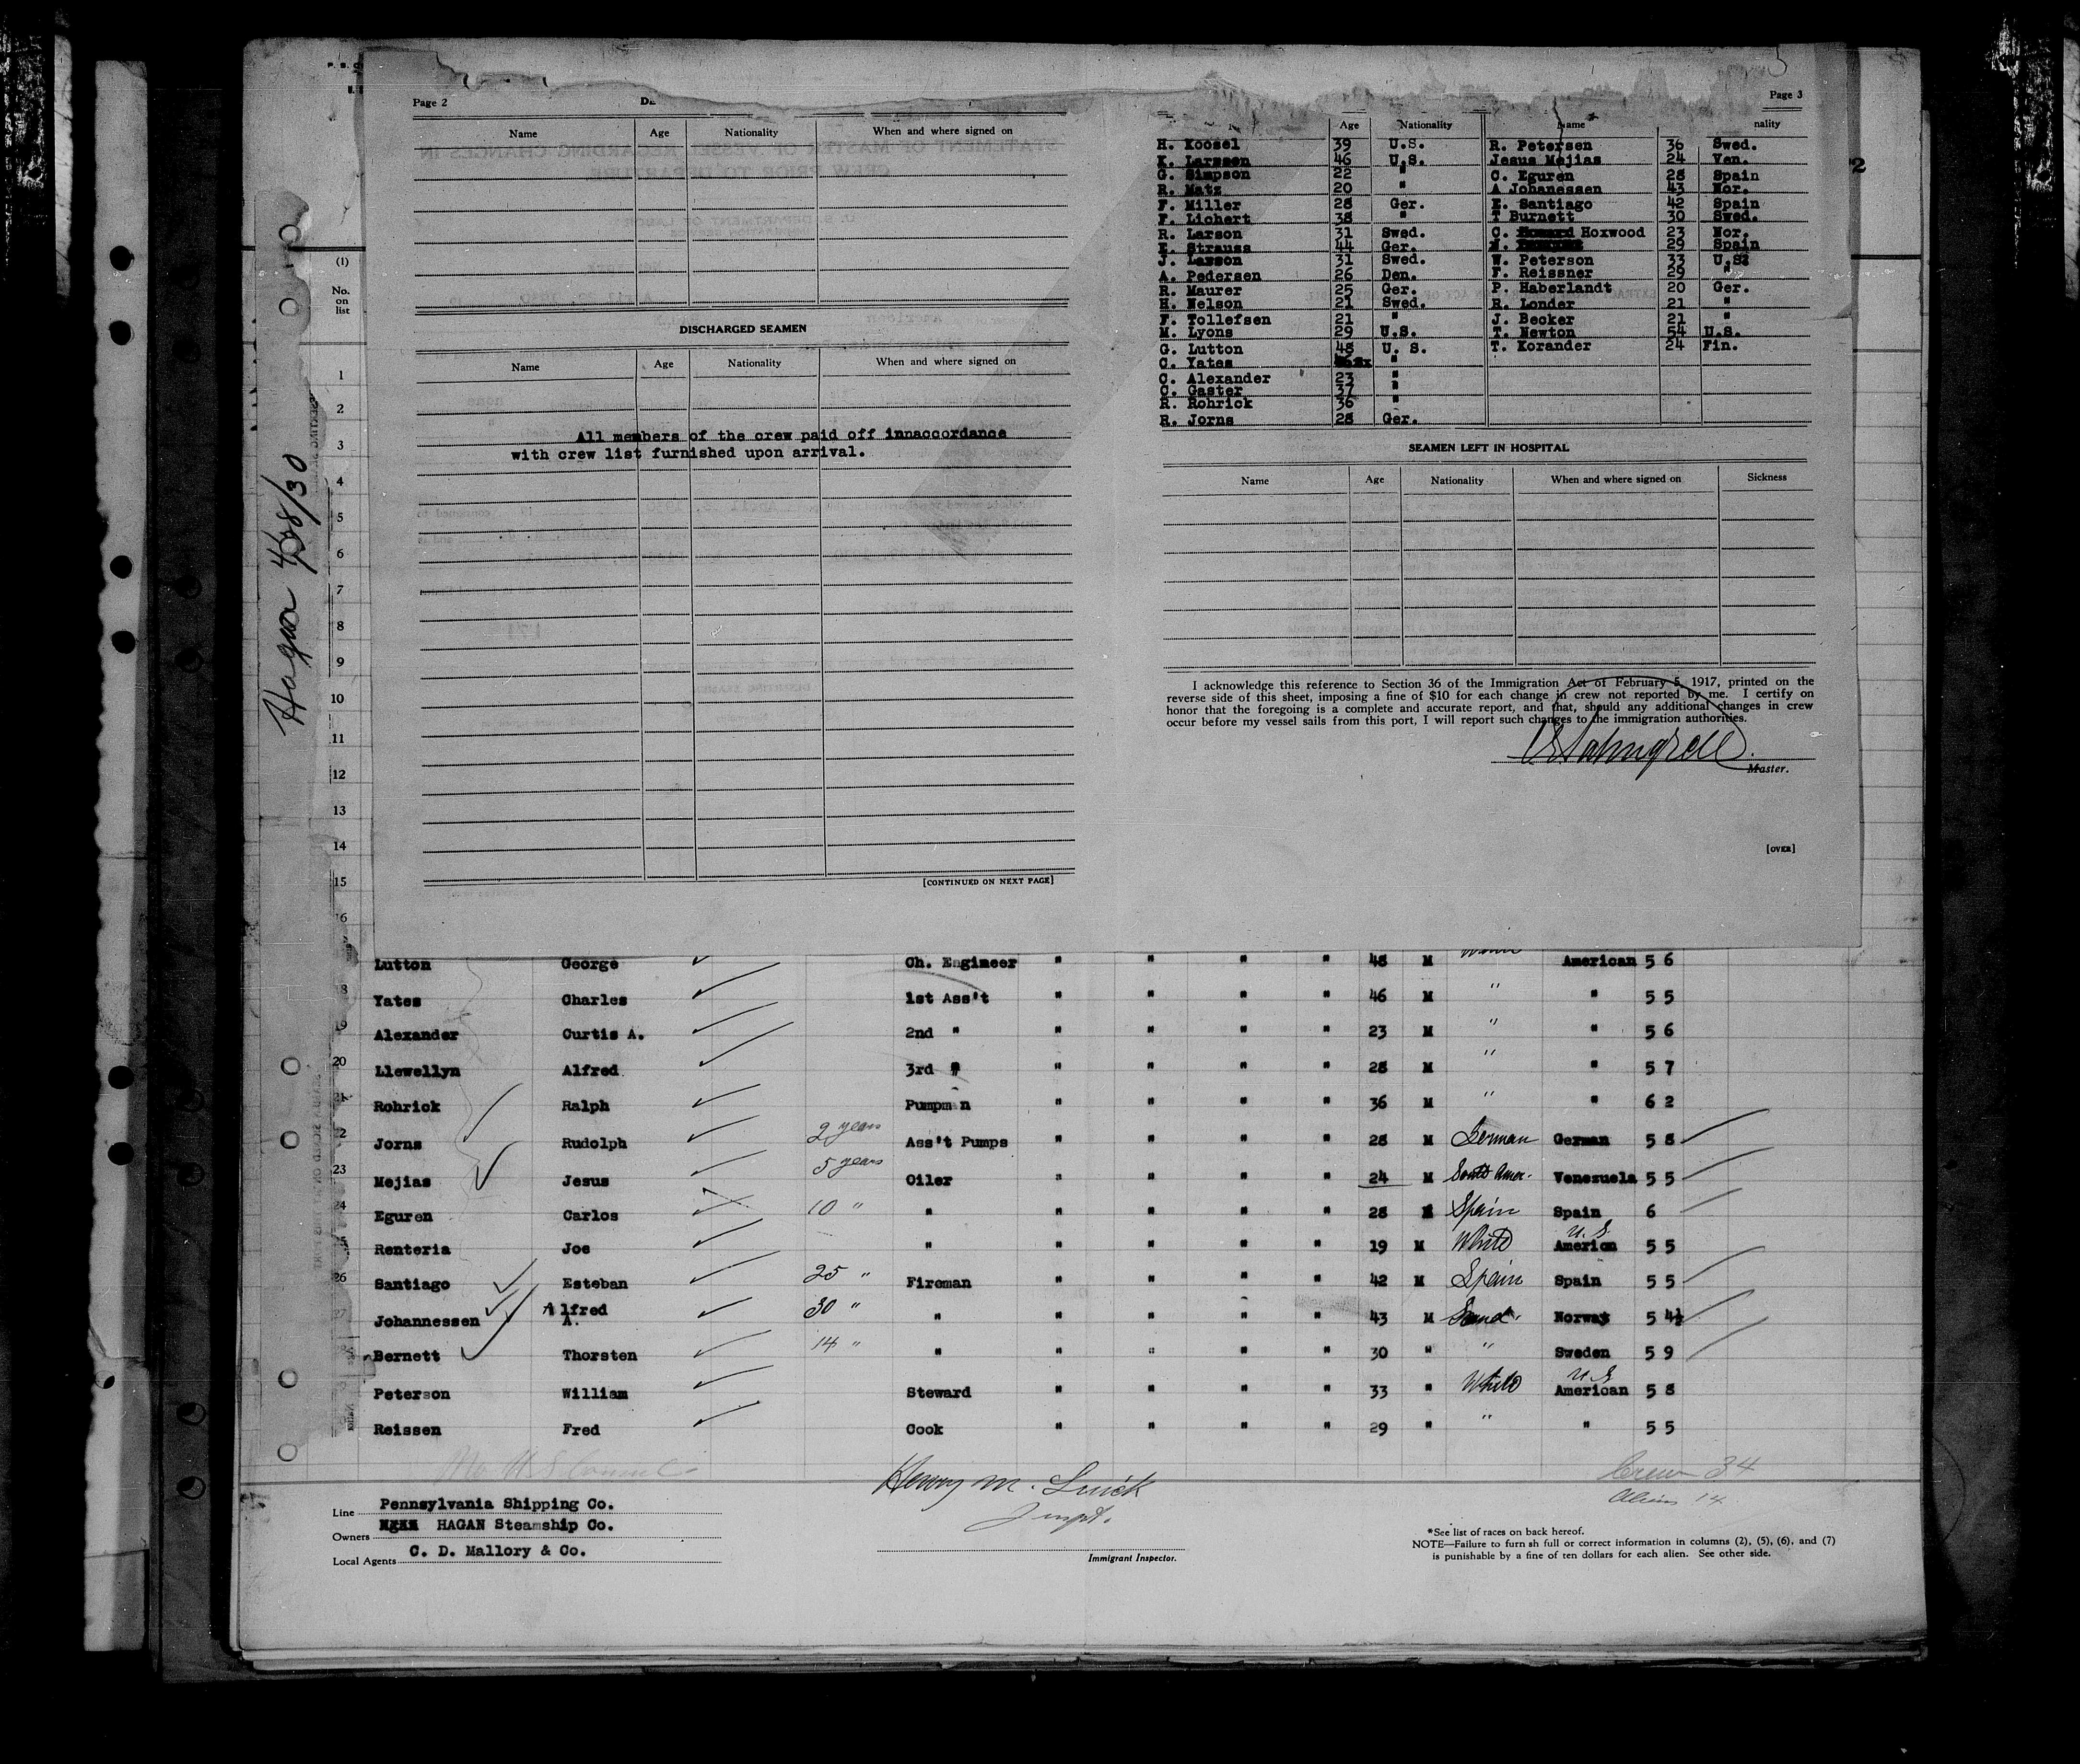 Page 2
Name Age Nationality When and where signed on
DISCHARGED SEAMEN
Name Age Nationality When and where signed on
All members of the crew paid off innaccordance
with crew list furnished upon arrival.
[CONTINUED ON NEXT PAGE]
Page 3
Age Nationality Name nality
H. Koosel 39 U.S. R. Petersen 36 Swed.
K. Larssen 46 U.S. Jesus Mejias 24 Ven.
G. Simpson 22 " C. Eguren 28 Spain
R. Matz 20 " A Johanessen 43 Nor.
F. Miller 28 Ger. E. Santiago 42 Spain
F. Lichert 38 " T Burnett 30 Swed.
R. Larson 31 Swed. C. Hoxwood 23 Nor.
E. Strauss 44 Ger. 29 Spain
J. Larson 31 Swed. W. Peterson 33 U.S.
A. Pedersen 26 Den. F. Reissner 29 "
R. Maurer 25 Ger. P. Haberlandt 20 Ger.
H. Nelson 21 Swed. R. Londer 21 "
F. Tollefsen 21 " J. Becker 21 "
M. Lyons 29 U.S. T. Newton 54 U.S.
G. Lutton 48 U. S. T. Korander 24 Fin.
C. Yates "
C. Alexander 23 "
C. Gaster 37 "
R. Rohrick 36 "
R. Jorns 28 Ger.
SEAMEN LEFT IN HOSPITAL
Name Age Nationality When and where signed on Sickness
I acknowledge this reference to Section 36 of the Immigration Act of February 5, 1917, printed on the
reverse side of this sheet, imposing a fine of $10 for each change in crew not reported by me. I certify on
honor that the foregoing is a complete and accurate report, and that, should any additional changes in crew
occur before my vessel sails from this port, I will report such changes to the immigration authorities.
Master.
[OVER]
Hagan 4/28/30
(1)
No.
on
list
1
2
3
4
5
6
7
8
9
10
11
12
13
14
15
16
Lutton George Ch. Engineer " " " " 48 M White American 5 6
18 Yates Charles 1st Ass't " " " " 46 M " " 5 5
19 Alexander Curtis A. 2nd " " " " " 23 M " " 5 6
20 Llewellyn Alfred 3rd " " " " " 28 M " " 5 7
21 Rohrick Ralph Pumpman " " " " 36 M " " 6 2
2 Jorns Rudolph 2 years Ass't Pumps " " " " 28 M German German 5 8
23 Mejias Jesus 5 years Oiler " " " " 24 M South Amer. Venezuela 5 5
24 Eguren Carlos 10 " " " " " " 28 M Spain Spain 6
Renteria Joe " " " " " 19 M White U.S. American 5 5
26 Santiago Esteban 25 " Fireman " " " " 42 M Spain Spain 5 5
27 Johannessen Alfred A. 30 " " " " " " 43 M Scand. Norway 5 4½
Bernett Thorsten 14 " " " " " " 30 " " Sweden 5 9
Peterson William Steward " " " " 33 " White U.S. American 5 8
Reissen Fred Cook " " " " 29 " " " 5 5
Crew 34
Aliens 14
Line Pennsylvania Shipping Co.
Owners HAGAN Steamship Co.
Local Agents C. D. Mallory & Co.
Henry M.
Inspt.
Immigrant Inspector.
*See list of races on back hereof.
NOTE—Failure to furn sh full or correct information in columns (2), (5), (6), and (7)
is punishable by a fine of ten dollars for each alien. See other side.